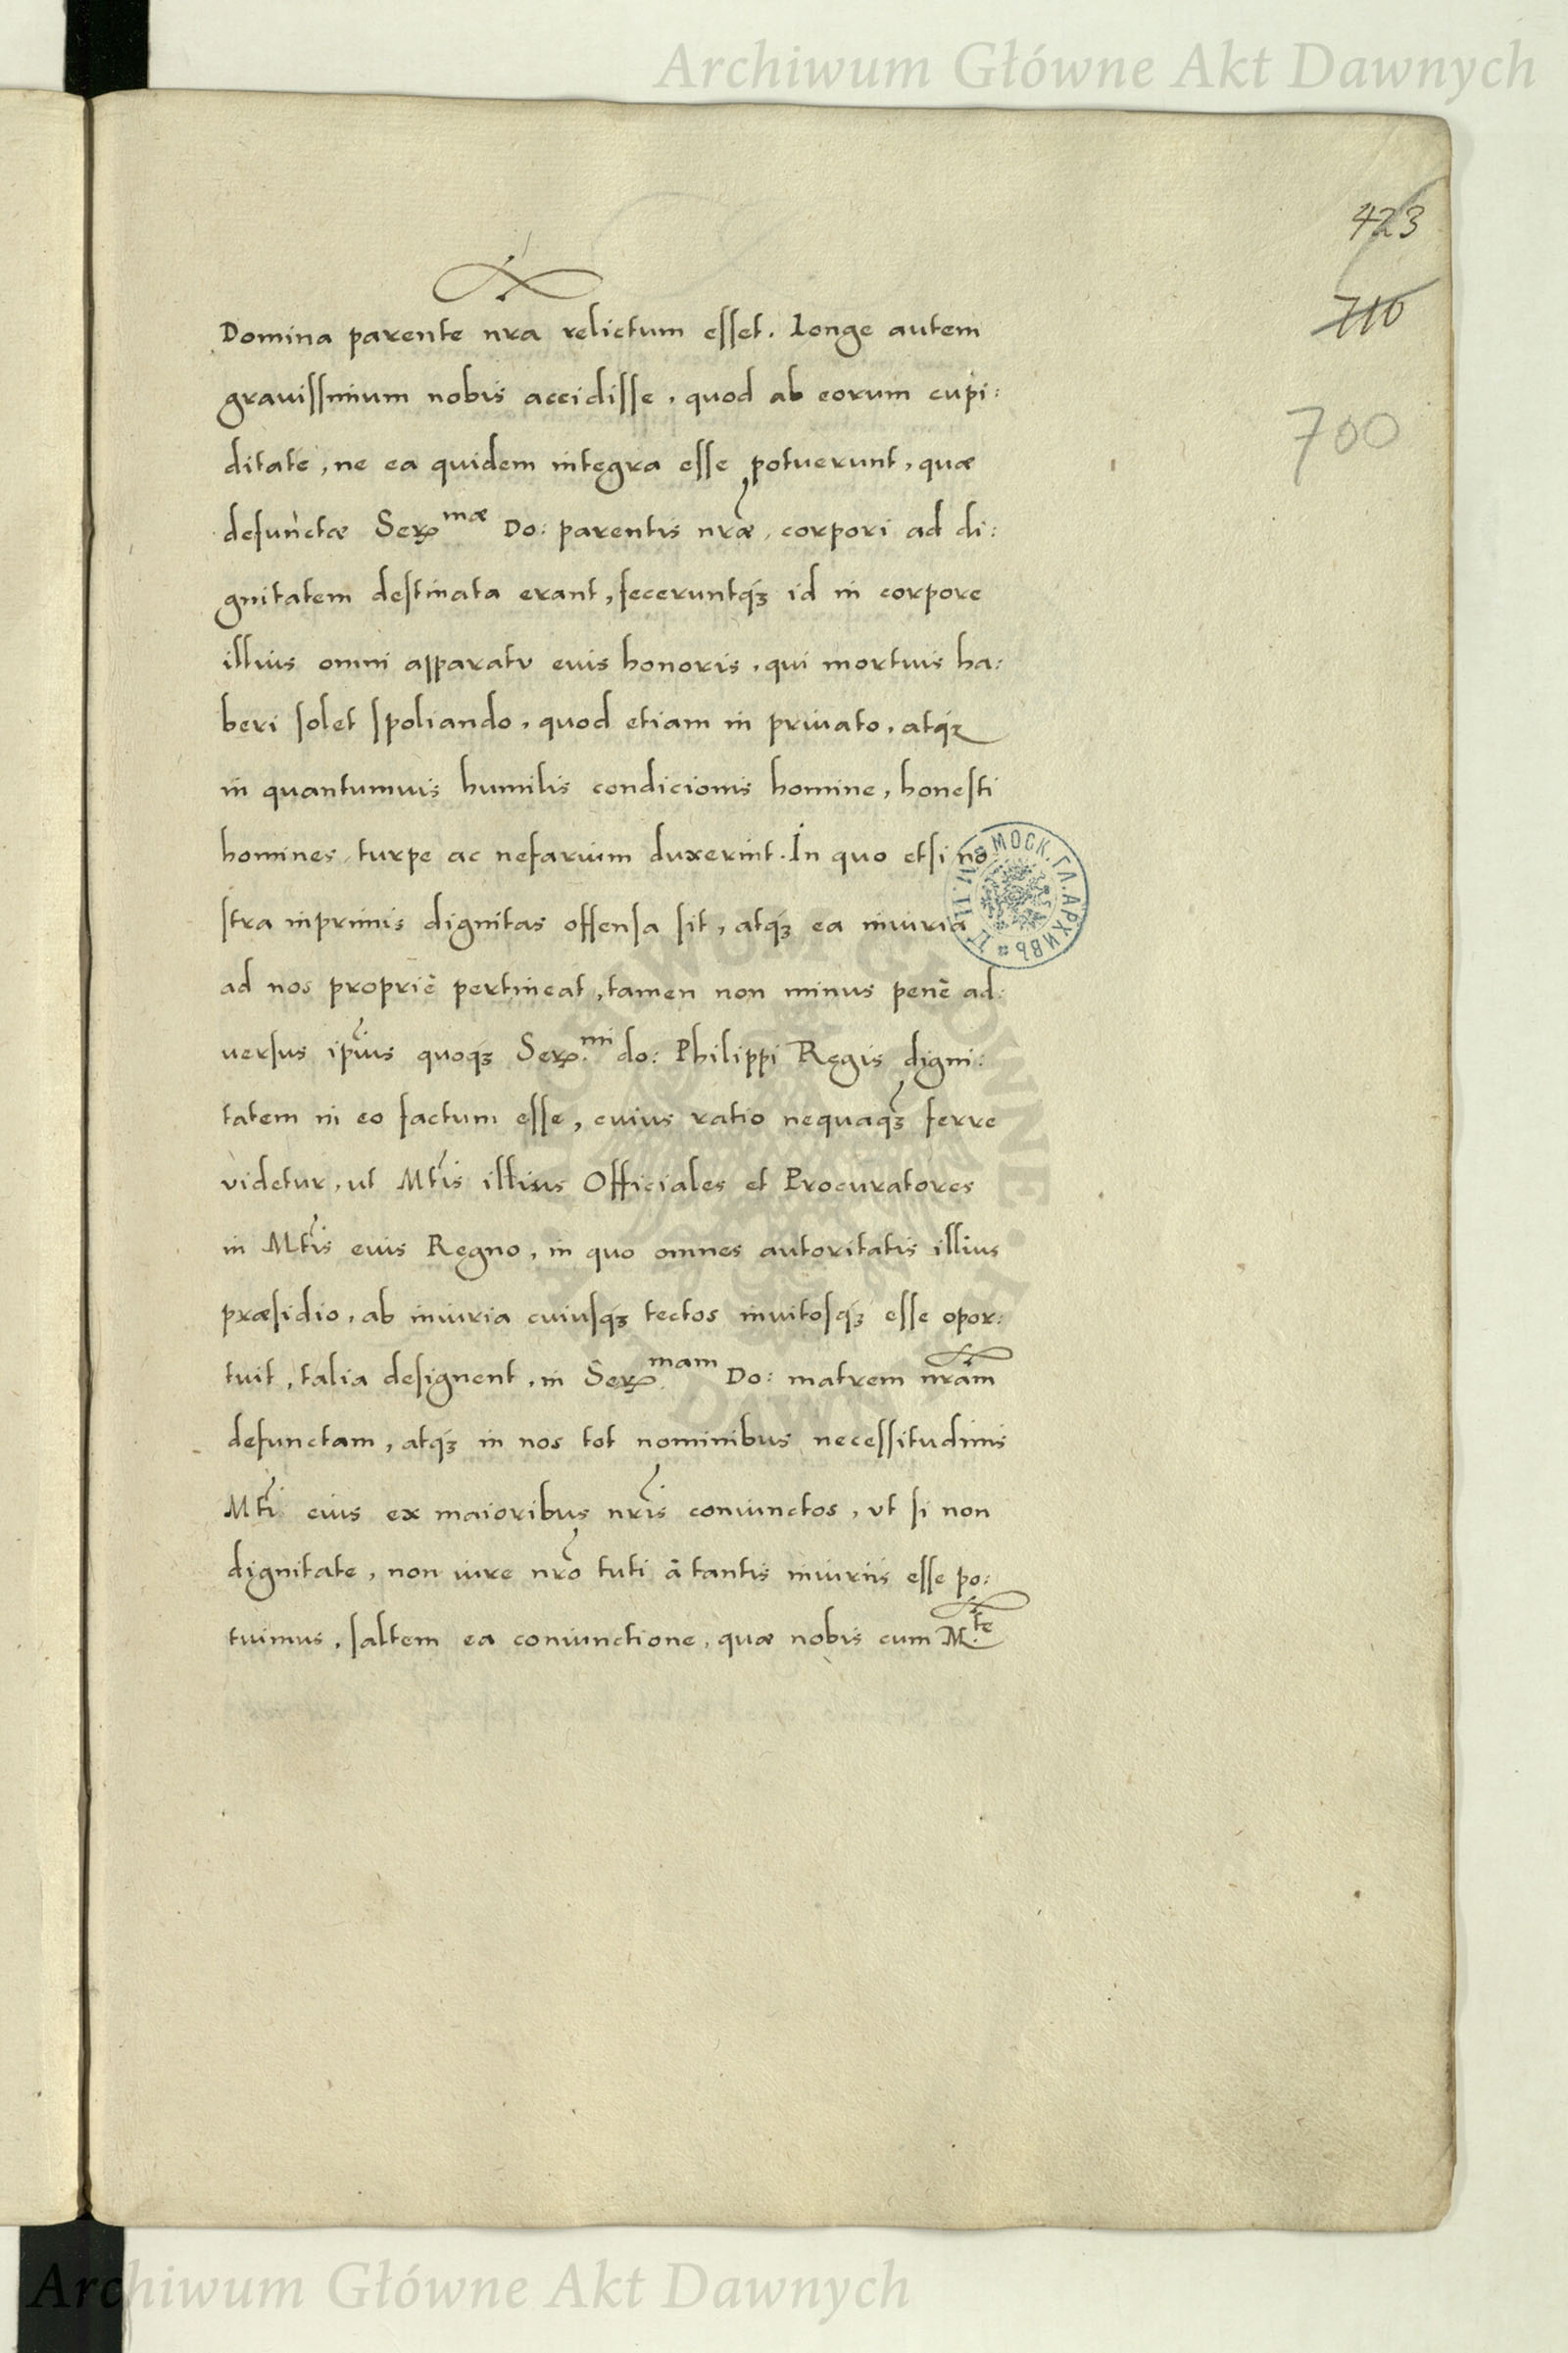 Archiwum Główne Akt Dawnych
423
710
700
Domina parente nra relictum esset. Longe autem
grauissimum nobis accidisse, quod ab eorum cupi:
ditate, ne ea quidem integra esse potuerunt, quæ
defunctæ Ser.mæ Do: parentis nræ, corpori ad di:
gnitatem destinata erant, feceruntq₃ id in corpore
illius omni apparatu euis honoris, qui mortuis ha:
beri solet spoliando, quod etiam in priuato, atq₃
in quantumuis humilis condicionis homine, honesti
homines, turpe ac nefarium duxerint. In quo etsi no:
stra inprimis dignitas offensa sit, atq₃ ea iniuria
ad nos propriè pertineat, tamen non minus penè ad:
uersus ipius quoq₃ Ser.mi do: Philippi Regis digni:
tatem in eo factum esse, cuius ratio nequaq₃ ferre
videtur, ut Mtis illius Officiales et Procuratores
in Mtis euis Regno, in quo omnes autoritatis illius
præsidio, ab iniuria cuiusq₃ tectos inuitosq₃ esse opor:
tuit, talia designent, in Ser.mam Do: matrem nram
defunctam, atq₃ in nos tot nominibus necessitudinis
Mti eius ex maioribus nris coniunctos, vt si non
dignitate, non iure nro tuti à tantis iniuriis esse po:
tuimus, saltem ea coniunctione, quæ nobis cum M.te
МОСК. ГЛ. АРХИВЪ
ARCHIWUM GŁÓWNE AKT DAWNYCH
Archiwum Główne Akt Dawnych